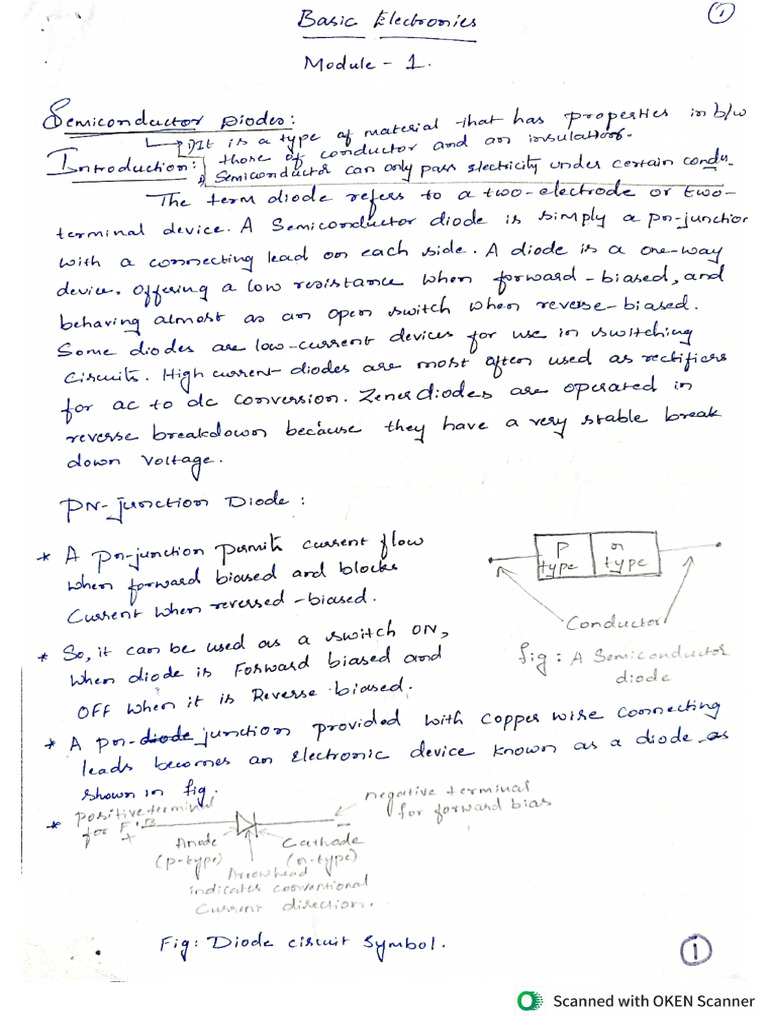 Basic Electronics
1
Module - 1.
Semiconductor Diodes:
1) It is a type of material that has properties in b/w
those of conductor and an insulators.
Introduction:
2) Semiconductor can only pass electricity under certain condn.
The term diode refers to a two-electrode or two-
terminal device. A Semiconductor diode is simply a pn-junction
with a connecting lead on each side. A diode is a one-way
device, offering a low resistance when forward-biased, and
behaving almost as an open switch when reverse-biased.
Some diodes are low-current devices for use in switching
circuits. High current diodes are most often used as rectifiers
for ac to dc conversion. Zener diodes are operated in
reverse breakdown because they have a very stable break
down voltage.
PN-junction Diode:
* A pn-junction permits current flow
when forward biased and blocks
current when reversed-biased.
P type
n type
Conductor
fig: A Semiconductor
diode
* So, it can be used as a switch ON,
when diode is Forward biased and
OFF when it is Reverse biased.
* A pn-diode junction provided with copper wire connecting
leads becomes an Electronic device known as a diode as
shown in fig.
* positive terminal
for F.B
+
negative terminal
for forward bias
-
Anode
(p-type)
Cathode
(n-type)
Arrowhead
indicates conventional
current direction.
Fig: Diode circuit symbol.
1
Scanned with OKEN Scanner